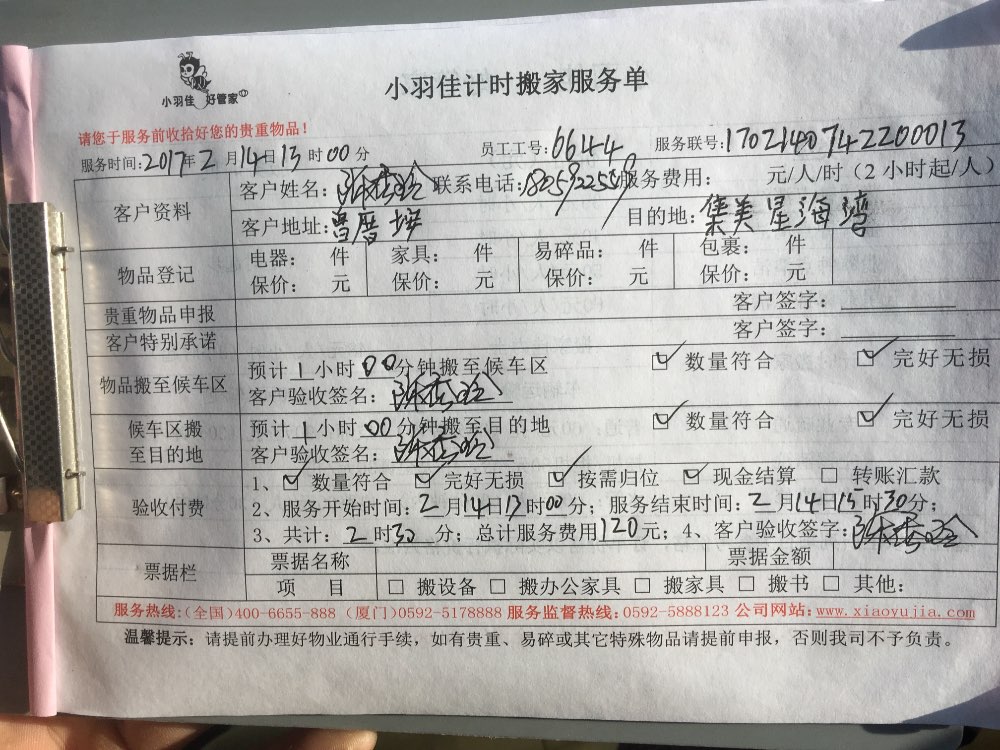 小羽佳 好管家
小羽佳计时搬家服务单
请您于服务前收拾好您的贵重物品！
服务时间：2017年2月14日13时00分 员工工号：6644 服务联号：1702140742200013
客户资料
客户姓名： 联系电话： 服务费用： 元/人/时（2小时起/人）
客户地址：曾厝垵 目的地：集美星海湾
物品登记
电器： 件 家具： 件 易碎品： 件 包裹： 件
保价： 元 保价： 元 保价： 元 保价： 元
贵重物品申报 客户签字：
客户特别承诺 客户签字：
物品搬至候车区
预计1小时00分钟搬至候车区 ☑ 数量符合 ☑ 完好无损
客户验收签名：
候车区搬至目的地
预计1小时00分钟搬至目的地 ☑ 数量符合 ☑ 完好无损
客户验收签名：
验收付费
1、☑ 数量符合 ☑ 完好无损 ☑ 按需归位 ☑ 现金结算 □ 转账汇款
2、服务开始时间：2月14日13时00分；服务结束时间：2月14日15时30分；
3、共计：2时30分；总计服务费用120元；4、客户验收签字：
票据栏
票据名称 票据金额
项 目 □ 搬设备 □ 搬办公家具 □ 搬家具 □ 搬书 □ 其他：
服务热线：(全国)400-6655-888 (厦门)0592-5178888 服务监督热线：0592-5888123 公司网站：www.xiaoyujia.com
温馨提示：请提前办理好物业通行手续，如有贵重、易碎或其它特殊物品请提前申报，否则我司不予负责。